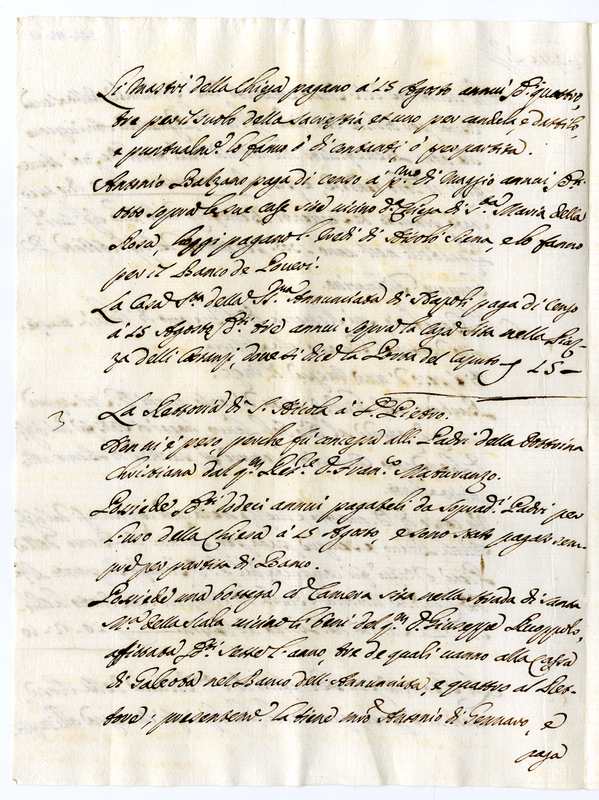 Li Mastri della Chiesa pagano à 15 Agosto annui D.ti quattro,
tre per il suolo della Sacrestia, et uno per candele, e dattilo,
e puntualm.te lo fanno ò di contanti, ò per partita.
Antonio Balzano paga di censo à p.mo di Maggio annui D.ti
otto sopra le sue case site vicino d.a Chiesa di S.ta Maria della
Rosa, hoggi pagano l' Eredi di Nicolò Siena, e lo fanno
per il Banco de Poveri.
La Casa S.ta della SS.ma Annunciata di Napoli paga di censo
à 15 Agosto D.ti tre annui sopra la casa sita nella Piaz-
za delli, dove si dice la Porta del Caputo 15 —
3 La Rettoria di S. Nicola à D. Pietro.
Non vi è peso, perche fù concessa alli Padri della Dottrina
Christiana dal q.m D. Fran.co Maturanzo.
Possiede D.ti dodeci annui pagateli da soprad.i Padri per
l' uso della Chiesa à 15 Agosto, e sono state pagate sem-
pre per partita di Banco.
Possiede una bottega cò Camera sita nella Strada di Santa
M.a della Scala vicino li beni del q.m D. Giuseppe,
affittata D.ti sette l' anno, tre de quali vanno alla Cassa
di Galeota nel Banco dell' Annunciata, e quattro al Ret-
tore; presentem.te la tiene m.ro Antonio di Gennaro, e
paga